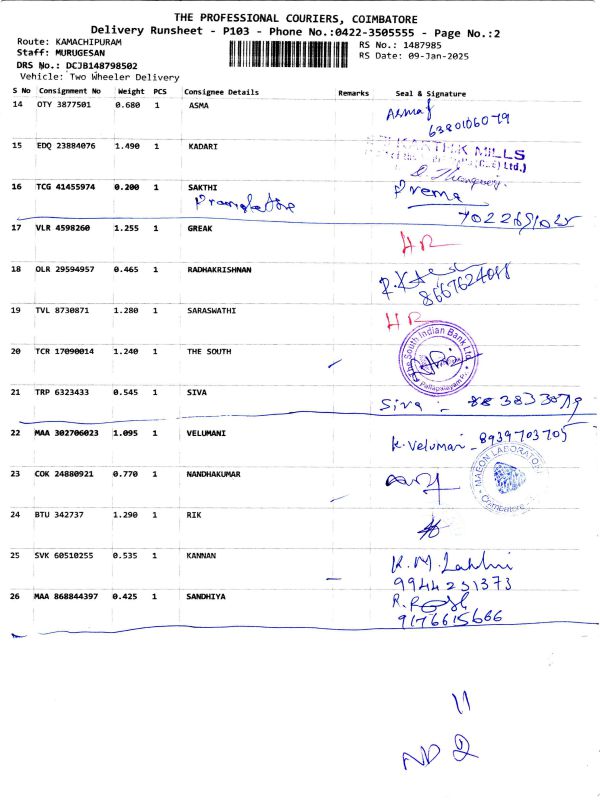 THE PROFESSIONAL COURIERS, COIMBATORE
Delivery Runsheet - P103 - Phone No.:0422-3505555 - Page No.:2
Route: KAMACHIPURAM RS No.: 1487985
Staff: MURUGESAN RS Date: 09-Jan-2025
DRS No.: DCJB148798502
Vehicle: Two Wheeler Delivery
S No Consignment No Weight PCS Consignee Details Remarks Seal & Signature
14 OTY 3877501 0.680 1 ASMA Asma
6380106079
15 EDQ 23884076 1.490 1 KADARI
MILLS
Ltd.)
16 TCG 41455974 0.200 1 SAKTHI Prema
17 VLR 4598260 1.255 1 GREAK HR
18 OLR 29594957 0.465 1 RADHAKRISHNAN
8667624048
19 TVL 8730871 1.280 1 SARASWATHI HR
20 TCR 17090014 1.240 1 THE SOUTH The South Indian Bank Ltd.
Pallapalayam
21 TRP 6323433 0.545 1 SIVA Siva :-
22 MAA 302706023 1.095 1 VELUMANI K. Velumani - 8939703705
23 COK 24880921 0.770 1 NANDHAKUMAR MAEON LABORATORY
Coimbatore
24 BTU 342737 1.290 1 RIK
25 SVK 60510255 0.535 1 KANNAN K.M.
9944231373
26 MAA 868844397 0.425 1 SANDHIYA
9176615666
11
ND 2